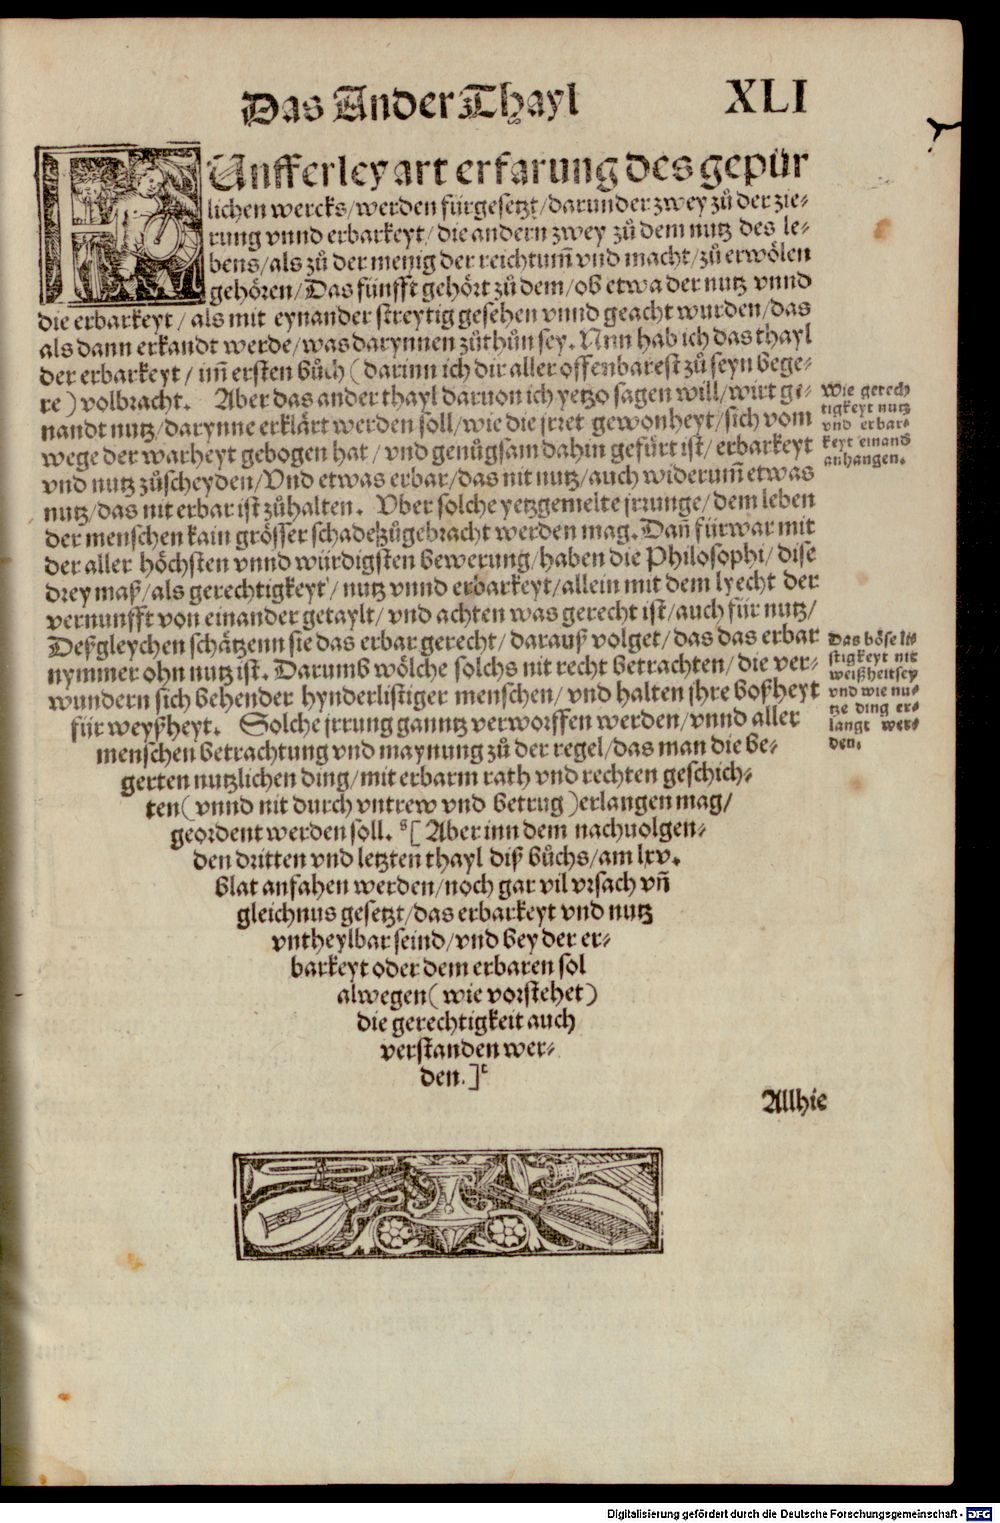 Das Ander Thayl
XLI
FUnfferley art erfarung des gepür
lichen wercks/werden fürgesetzt/darunder zwey zů der zie-
rung vnnd erbarkeyt/die andern zwey zů dem nutz des le-
bens/als zů der menig der reichtum̃ vnd macht/zů erwölen
gehören/Das fünfft gehört zů dem/ob etwa der nutz vnnd
die erbarkeyt/als mit eynander streytig gesehen vnnd geacht wurden/das
als dann erkandt werde/was darynnen zůthůn sey. Nun hab ich das thayl
der erbarkeyt/im̃ ersten bůch (darinn ich dir aller offenbarest zů seyn bege-
re) volbracht. Aber das ander thayl daruon ich yetzo sagen will/wirt ge-
nandt nutz/darynne erklärt werden soll/wie die jrret gewonheyt/sich vom
wege der warheyt gebogen hat/vnd genůgsam dahin gefürt ist/erbarkeyt
vnd nutz zůscheyden/Vnd etwas erbar/das nit nutz/auch widerum̃ etwas
nutz/das nit erbar ist zůhalten. Vber solche yetzgemelte jrrunge/dem leben
der menschen kain grösser schade zůgebracht werden mag. Dañ fürwar mit
der aller höchsten vnnd würdigsten bewerung/haben die Philosophi/dise
drey maß/als gerechtigkeyt/nutz vnnd erbarkeyt/allein mit dem lyecht der
vernunfft von einander getaylt/vnd achten was gerecht ist/auch für nutz/
Deßgleychen schätzenn sie das erbar gerecht/darauß volget/das das erbar
nymmer ohn nutz ist. Darumb wölche solchs nit recht betrachten/die ver-
wundern sich behender hynderlistiger menschen/vnd halten jhre boßheyt
für weyßheyt. Solche jrrung ganntz verworffen werden/vnnd aller
menschen betrachtung vnd maynung zů der regel/das man die be-
gerten nutzlichen ding/mit erbarm rath vnd rechten geschich-
ten (vnnd nit durch vntrew vnd betrug) erlangen mag/
geordent werden soll. ˢ[ Aber inn dem nachuolgen-
den dritten vnd letzten thayl diß bůchs/am lxv.
blat anfahen werden/noch gar vil vrsach vñ
gleichnus gesetzt/das erbarkeyt vnd nutz
vntheylbar seind/vnd bey der er-
barkeyt oder dem erbaren sol
alwegen (wie vorstehet)
die gerechtigkeit auch
verstanden wer-
den. ]ᵗ
Wie gerech
tigkeyt nutz
vnd erbar-
keyt einand
anhangen.
Das böse li-
stigkeyt nit
weißheit sey
vnd wie nu-
tze ding er-
langt wer-
den.
Allhie
Digitalisierung gefördert durch die Deutsche Forschungsgemeinschaft - DFG